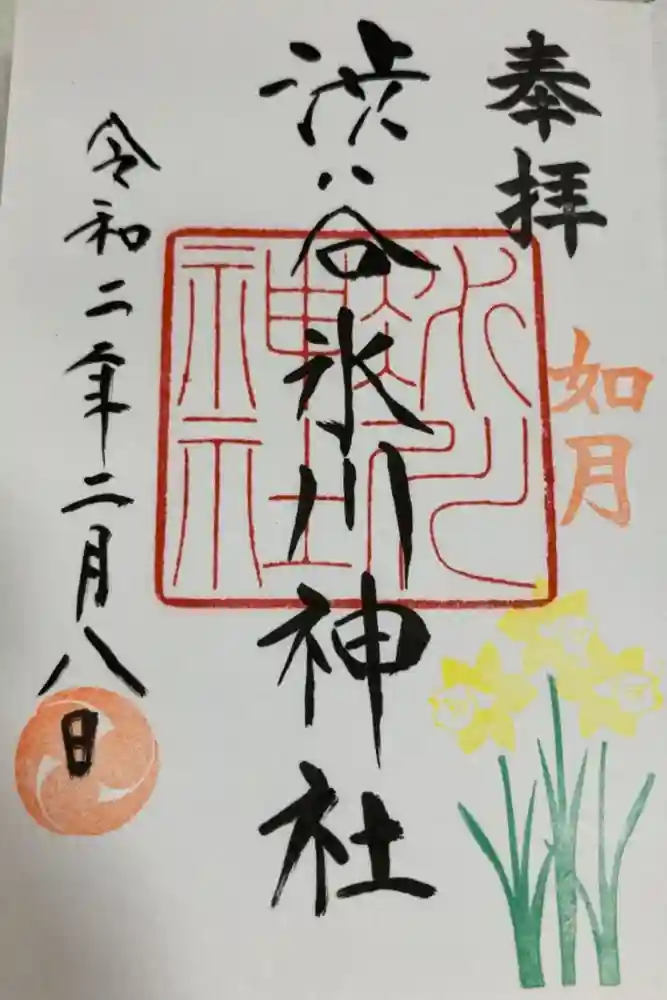 奉拝
如月
渋谷氷川神社
令和二年二月八日